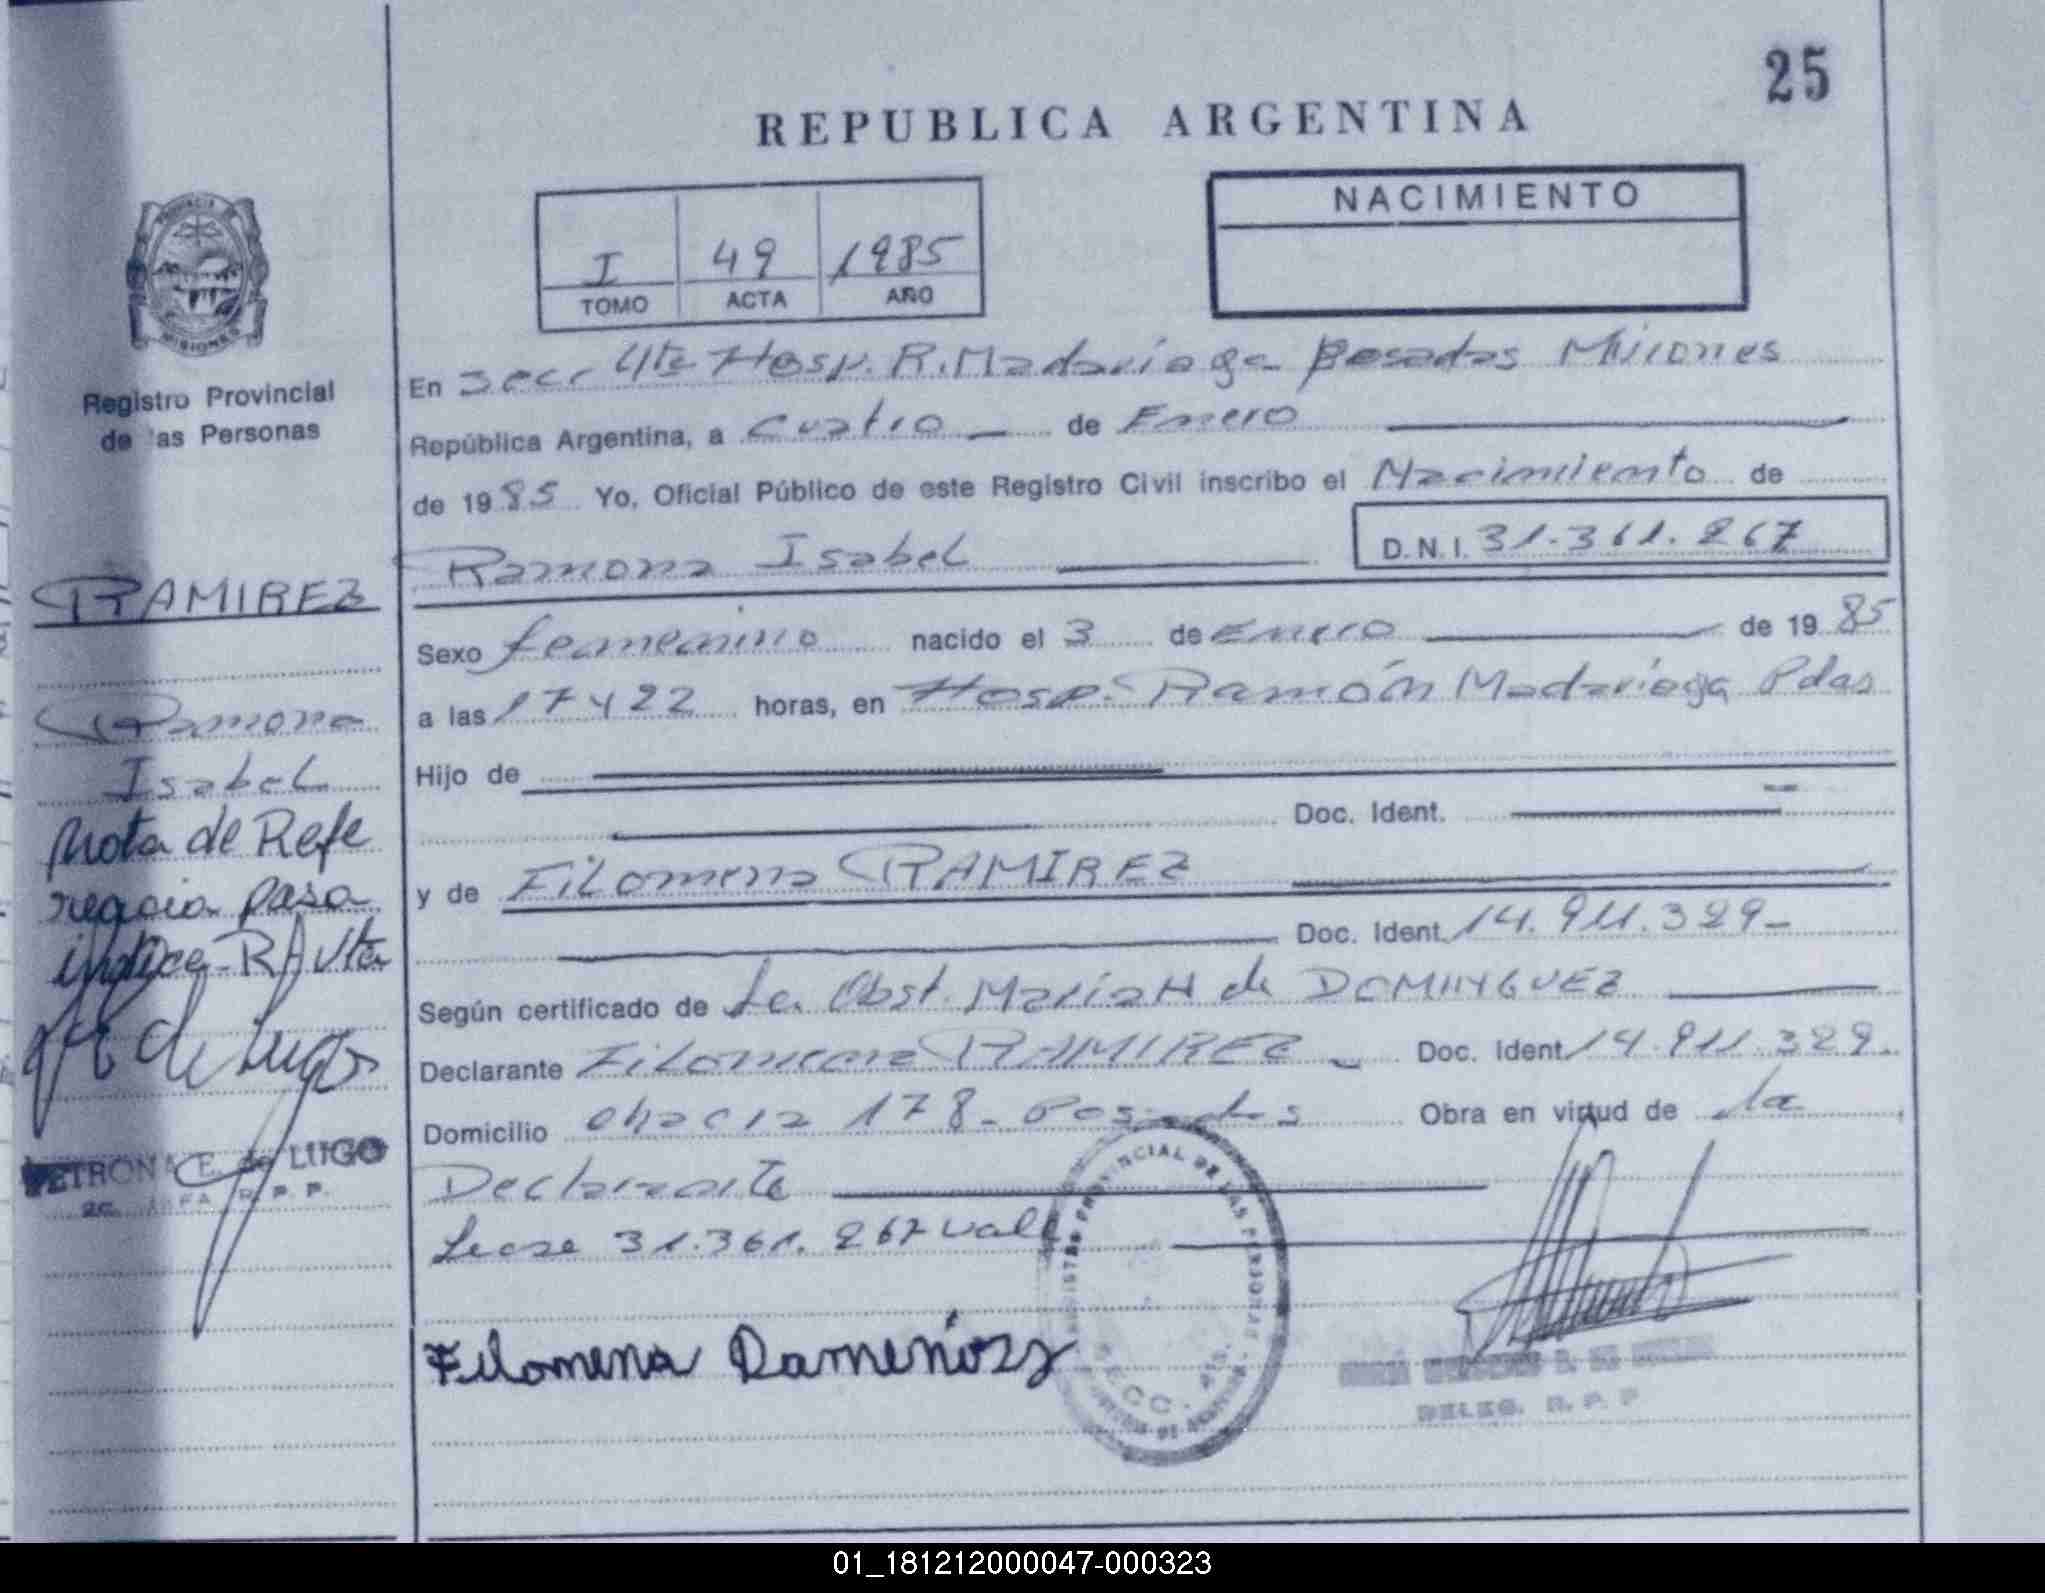 25
REPUBLICA ARGENTINA
I 49 1985
TOMO ACTA AÑO
NACIMIENTO
PROVINCIA DE MISIONES
Registro Provincial
de las Personas
En Secc 4ta Hosp. R. Madariaga Posadas Misiones
República Argentina, a cuatro de Enero
de 1985 Yo, Oficial Público de este Registro Civil inscribo el Nacimiento de
Ramona Isabel D.N.I. 31.361.267
Sexo femenino nacido el 3 de Enero de 1985
a las 17 y 22 horas, en Hosp. Ramón Madariaga Pdas
Hijo de
Doc. Ident.
y de Filomena RAMIREZ
Doc. Ident. 14.911.329-
Según certificado de La Obst. Maria H de DOMINGUEZ
Declarante Filomena RAMIREZ Doc. Ident. 14.911.329.
Domicilio chacra 178- Posadas Obra en virtud de la
Declarante
Lease 31.361.267 vale
Filomena
REGISTRO PROVINCIAL DE LAS PERSONAS
SECC. 4ta.
DELEG. R. P. P
RAMIREZ
Ramona
Isabel
Nota de Refe
rencia pasa
indice R.A vta
de Lugo
PETRONA E. de LUGO
R. P. P.
01_181212000047-000323